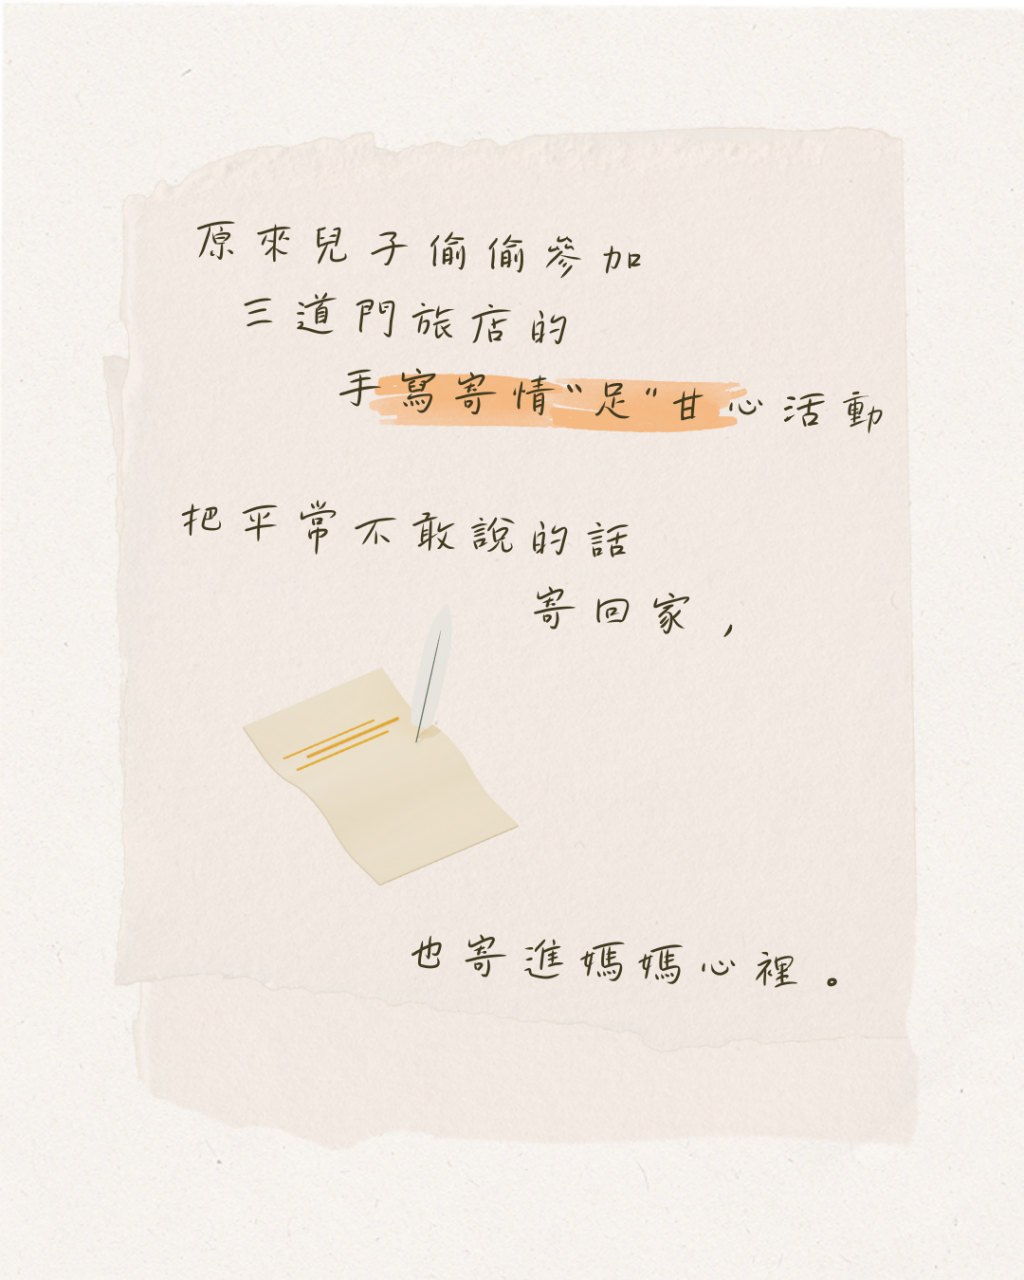 原來兒子偷偷參加
三道門旅店的
手寫寄情"足"甘心活動
把平常不敢說的話
寄回家，
也寄進媽媽心裡。